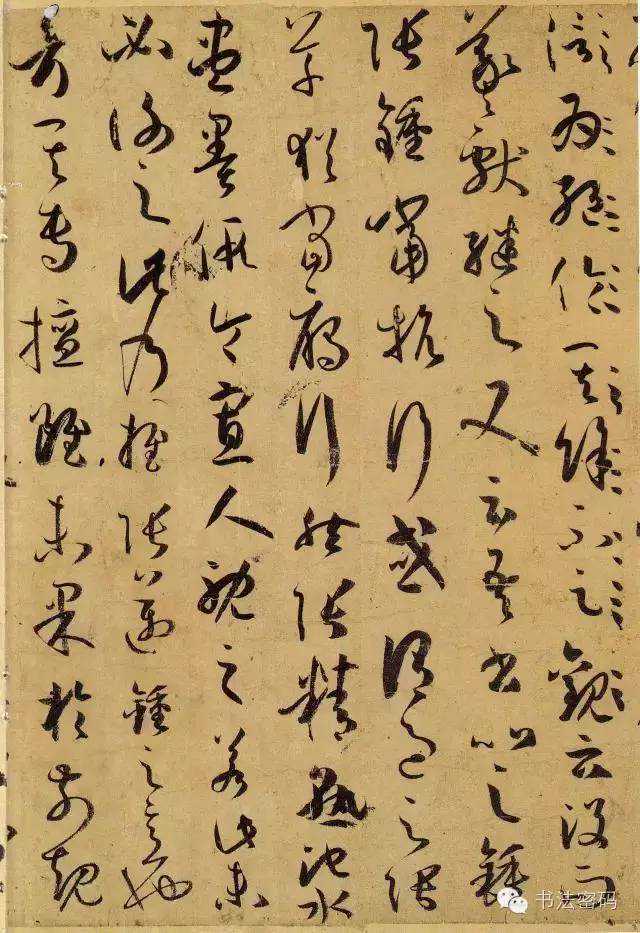 信為絕倫其餘不足觀云沒而
羲獻繼之又云吾書比之鍾
張鍾當抗行或謂過之張
草猶當雁行然張精熟池水
盡墨假令寡人耽之若此未
必謝之此乃推張邁鍾之意也
考其專擅雖未果於前規
书法密码